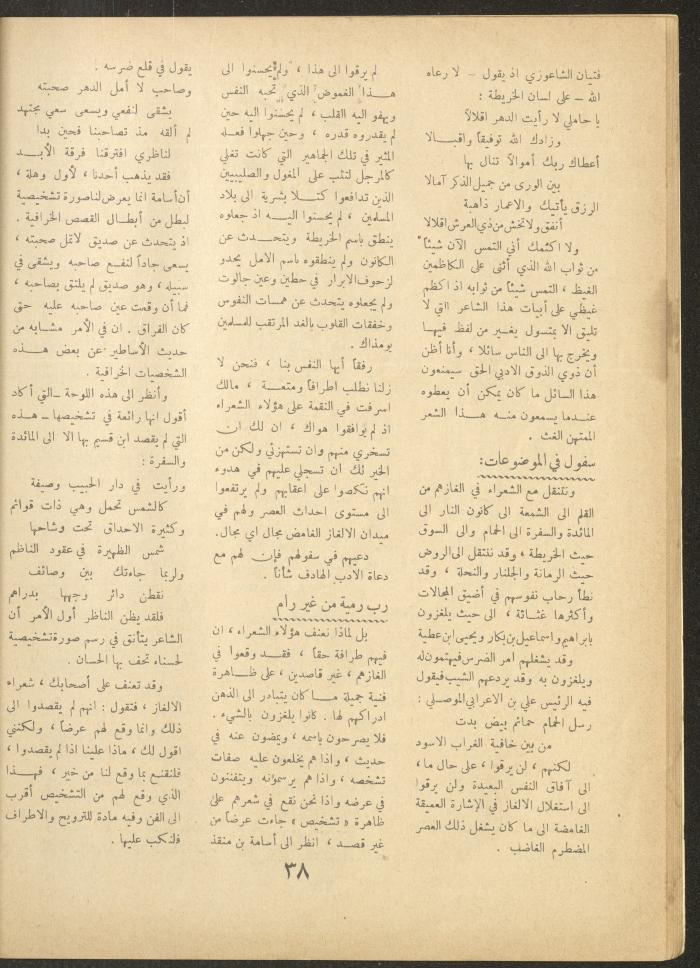 فتبان الشاغوزي اذ يقول – لا رعاه
الله – على لسان الخريطة :
يا حاملي لا رأيت الدهر اقلالاً
وزادك الله توفيقاً واقبـالا
أعطاك ربك أموالاً تنال بها
بين الورى من جميل الذكر آمالا
الرزق يأتيك والاعمار ذاهبة
أنفق ولا تخش من ذي العرش اقلالا
ولا اكتمك أني التمس الآن شيئاً
من ثواب الله الذي أثنى على الكاظمين
الغيظ ، التمس شيئاً من ثوابه اذ اكظم
غيظي على أبيات هذا الشاعر التي لا
تليق الا بمتسول يغـير من لفظ فيهـا
ويخرج بها الى الناس سائلا ، وأنا أظن
أن ذوي الذوق الادبي الحق سيمنعون
هذا السائل ما كان يمكن أن يعطوه
عنـدما يسمعون منـه هـذا الشعر
الممتهن الغث .
سفول في الموضوعات:
وننتقل مع الشعراء في الغازهم من
القلم الى الشمعة الى كانون النار الى
المائدة والسفرة الى الحمام والى السوق
حيث الخريطة ، وقد ننتقل الى الروض
حيث الرمانة والجلنار والنحلة ، وقد
نطأ رحاب نفوسهم في أضيق المجالات
وأكثرها غثـاثة ، الى حيث يلغزون
بابراهيم واسماعيل بن بكار ويحيى ابن عطية
وقد يشغلهم امر الضرس فيهتمون له
ويلغزون به وقد يردعهم الشيب فيقول
فيه الرئيس علي بن الاعرابي الموصلي :
رسل الحمام حمائم بيض بدت
من بين خافية الغراب الاسود
لكنهم ، لن يرقوا ، على حال ما ،
الى آفاق النفس البعيدة ولن يرقوا
الى استغلال الالغاز في الإشارة العميقة
الغامضة الى ما كان يشغل ذلك العصر
المضطرم الغاضب .
لم يرقوا الى هذا ، ولم يحسنوا الى
هـذا الغموض الذي تحبه النفس
ويهفو اليه القلب ، لم يحسنوا اليه حين
لم يقدروه قدره ، وحين جهلوا فعـله
المثير في تلك الجماهير التي كانت تغلي
كالمرجل لتثب على المغول والصليبيين
الذين تدافعوا كتـلا بشرية الى بلاد
المسلمين ، لم يحسنوا اليـه اذ جعلوه
ينطق باسم الخريطة ويتحـدث عن
الكانون ولم ينطقوه باسم الامل يحدو
لزحوف الابرار في حطين وعين جالوت
ولم يجعلوه يتحدث عن همسات النفوس
وخفقات القلوب بالغد المرتقب للمسلمين
يومذاك .
رفقاً أيها النفس بنا ، فنحن لا
زلنا نطلب اطرافاً ومتعـة ، مالك
اسرفت في النقمة على هؤلاء الشعراء
اذ لم يوافقوا هواك ، ان لك ان
تسخري منهم وان تستهزئي ولكن من
الخير لك ان تسجلي عليهم في هدوء
انهم نكصوا على اعقابهم ولم يرتفعوا
الى مستوى احداث العصر ولهم في
ميدان الالغاز الغامض مجال اي مجال.
دعيهم في سفولهم فإن لهم مع
دعاة الادب الهادف شأناً .
رب رمية من غير رام
بل لماذا نعنف هؤلاء الشعراء ، ان
فيهم طرافة حقاً ، فقـد وقعوا في
الغازهم ، غير قاصدين ، على ظـاهرة
فنية جميلة ما كان يتبادر الى الذهن
ادراكهم لها . كانوا يلغزون بالشيء .
فلا يصرحون باسمه ، ويمضون عنه في
حديث ، واذا هم يخلعون عليه صفات
تشخصه ، واذا هم يرسمونه ويتفننون
في عرضه واذا نحن نقع في شعرهم على
ظاهرة « تشخيص » جاءت عرضاً من
غير قصـد ، انظر الى أسامة بن منقذ
يقول في قلع ضرسه .
وصاحب لا أمل الدهر صحبته
يشقى لنفعي ويسعى سعي مجتهد
لم القه مذ تصاحبنا فحين بدا
لناظري افترقنا فرقة الأبـد
فقد يذهب أحدنا ، لأول وهلة ،
أن أسامة انما يعرض لنا صورة تشخيصية
لبطل من أبطـال القصص الخرافية .
اذ يتحدث عن صديق لا تمل صحبته ،
يسعى جاداً لنفـع صاحبه ويشقى في
سبيله ، وهو صديق لم يلتق بصاحبه ،
فما أن وقعت عين صاحبه عليه حتى
كان الفراق . ان في الأمر مشابه من
حديث الأساطير عن بعض هـذه
الشخصيات الخرافية .
وأنظر الى هذه اللوحة – التي أكاد
أقول انها رائعة في تشخيصها – هـذه
التي لم يقصد ابن قسيم بها الا الى المائدة
والسفرة :
ورأيت في دار الحبيب وصيفة
كالشمس تحمل وهي ذات قوائم
وكثيرة الاحداق تحت وشاحها
شمس الظهيرة في عقود الناظم
ولربما جاءتك بين وصائف
نقطن دائر وجهها بدراهم
فلقد يظن الناظر أول الأمر أن
الشاعر يتأنق في رسم صورة تشخيصية
لحسناء تحف بها الحسان .
وقد تعنف على أصحابك ، شعراء
الالغاز ، فتقول : انهم لم يقصدوا الى
ذلك وانما وقع لهم عرضاً ، ولكنني
اقول لك ، ماذا علينا اذا لم يقصدوا ،
فلنقنع بما وقع لنا من خير ، فهـذا
الذي وقع لهم من التشخيص أقرب
الى الفن وفيه مادة للترويح والاطراف
فلنكب عليها .
٣٨